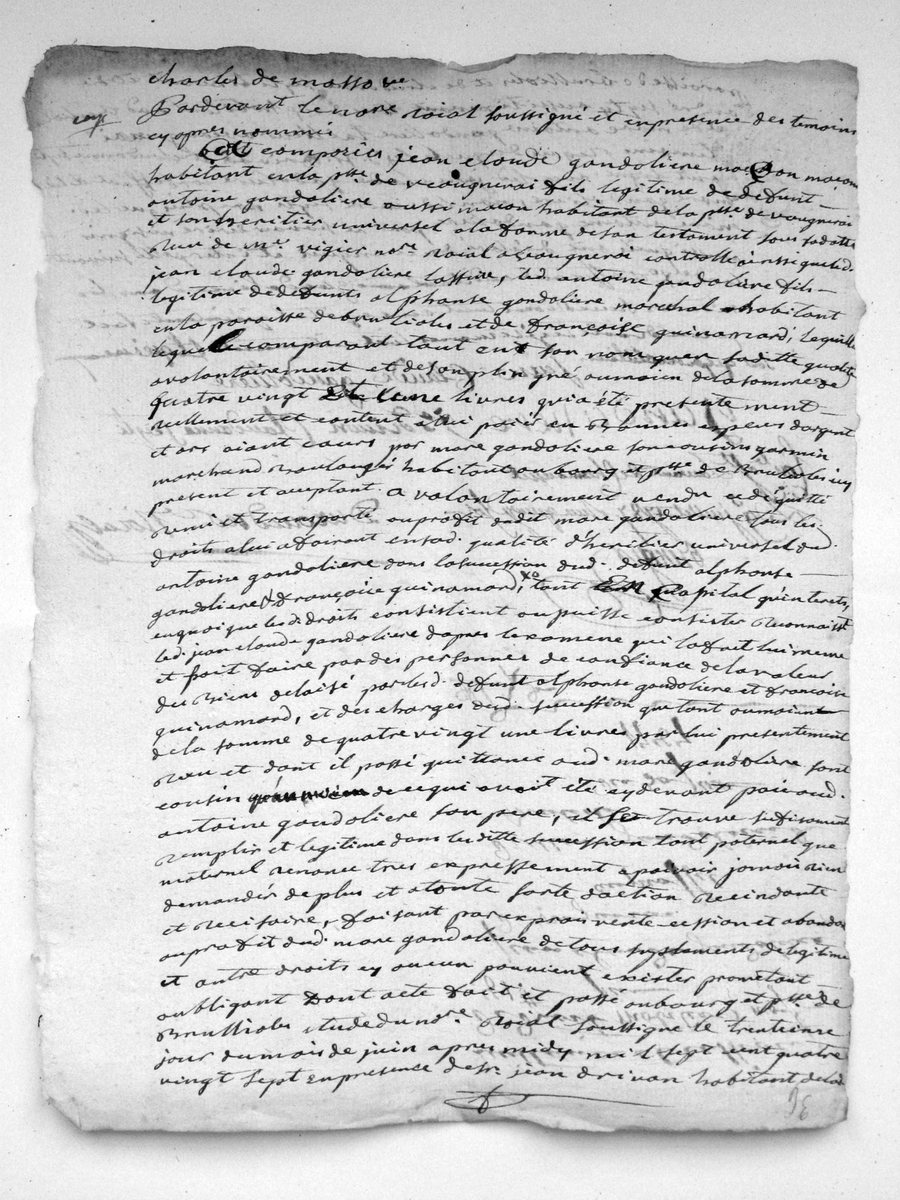 charles de masso
Pardevant le nore roial soussigné et enpresence des temoins
cy apres nommés
est comparies jean claude gandoliere maçon
habitant en la psse de veaugnerai fils legitime de defunt
antoine gandoliere aussi macon habitant de la psse de vaugnerai
et son heritier universel a la forme de son testament sous sa datte
Reçu de mr. vigier nre. roial a veaugnerai controllé ainssi que led.
jean claude gandoliere laffirre, led. antoine gandolière fils
legitime de defunts alphonse gandoliere marchal habitant
en la paroisse de brulioles et de françoise guinamard, laquelle
lequel comparant tant en son nom quen sa ditte qualité
avolontairement et de son plin gré au moien de la somme de
quatre vingt une livres qui a été presentement
reellement et content a lui paiés en bonnes especes dargent
et ors aiant cours par marc gandoliere son cousins germin
marchand boulangés habitant au bourg et psse de Brulioles icy
present et aceptant a volontairement vendu cedé quitté
remi et transporté au profit dudit marc gandoliere tous les
droits a lui afairant en sad. qualité d'heritier universel dud.
antoine gandoliere dans la succession dud. defunt alphonse
gandoliere & françoise guinamard, tant en Capital qu'interets,
en quoi que les d. droits consistient ou puisse consister reconnaiss
led. jean claude gandoliere dapres lexamene qui la fait lui meme
et fait faire par des personnes de confiance de la valeur
des Biens delaisé par les d. defunt alphonse gandoliere et francoise
guinamard, et des charges dud. succession que tant au moient
de la somme de quatre vingt une livres par lui presentement
Reçu et dont il passé quittance aud. marc gandoliere sont
cousin de ce qui avoit été cy devant paié aud.
antoine gandoliere son pere, il se trouve sufisament
remplir et legitime dans les ditte succession tant paternel que
maternel renonce tres expressement a pouvoir jamais rien
demandés de plus et atoute sorte daction recindante
et recisoire, faisant par exprais vente cession et abandon
au profit dud. marc gandoliere de tous supplements de legitime
et autre droits cy aucun pouvient exister prometant
aubligant dont acte fait et passé au bourg et psse de
Brussioles etude du nre. roial soussigné le trentieme
jour du mois de juin apres midy mil sept cent quatre
vingt sept en presence de sr. jean drivon habitant de lad